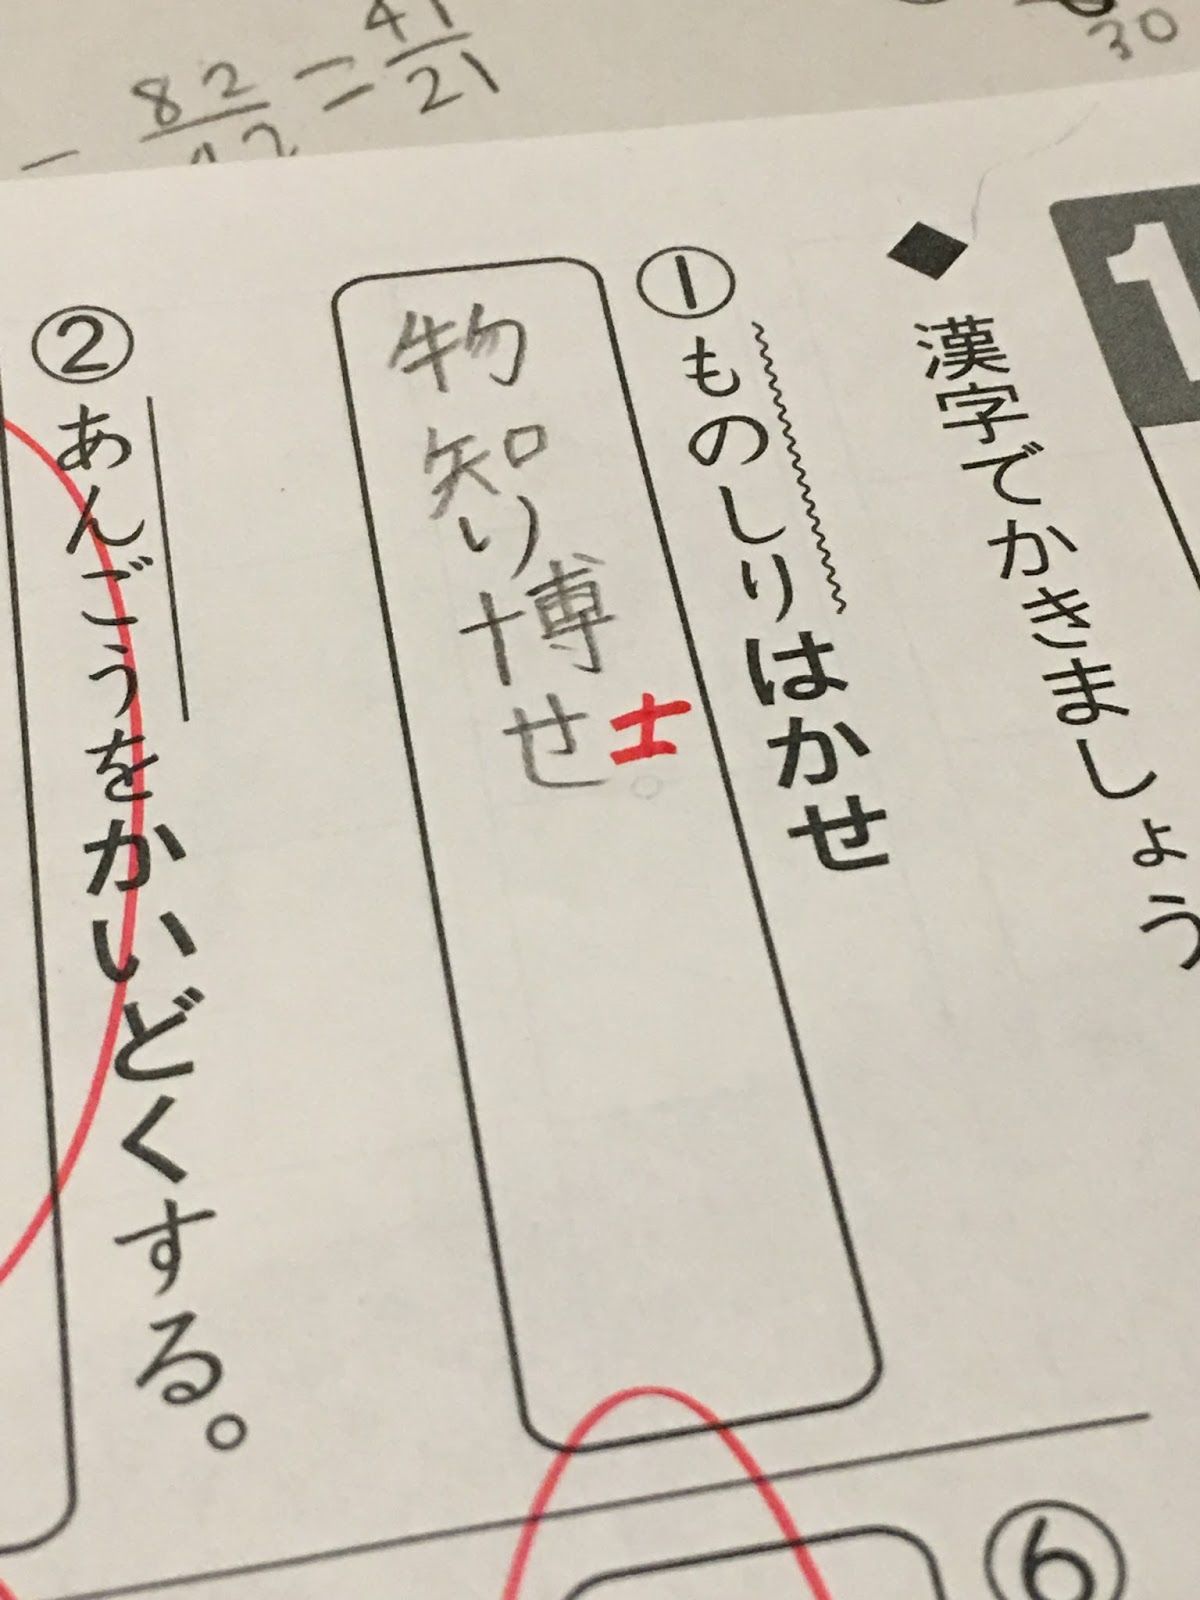 82/42=41/21
30
1
◆漢字でかきましょう
①ものしりはかせ
物知り博せ
士
②あんごうをかいどくする。
⑥